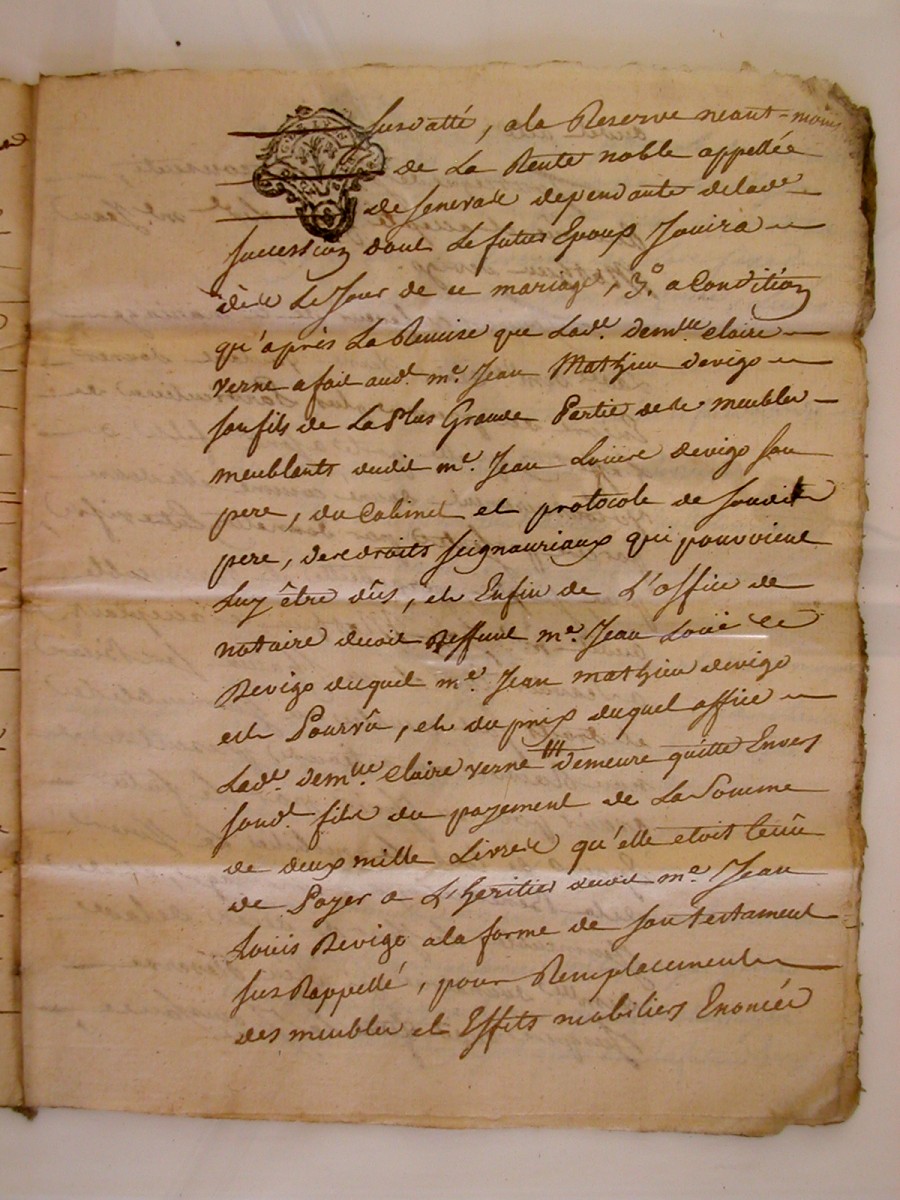 susdatté, a la Reserve neant-moins
de La Rente noble appellée
de Senerade dependante delade
succession dont Le futur Epoux Jouira
dès Le Jour de ce mariage, 3.º a Condition
qu'après La Remise que Lad.e dem.lle claire
verne a fait aud. m.e Jean Mathieu devigo
son fils de La Plus Grande Partie de se meubles
meublants dudit m.e Jean Louis devigo son
pere, du Cabinet et protocole de soudit
pere, des droits seignauriaux qui pouvoient
Luy être dûs, et Enfin de L'office de
notaire dudit deffunt m.e Jean Louis
Devigo duquel m.e Jean mathieu devigo
est Pourvû, et du prix duquel office
Lad.e dem.lle Claire verne demeure quitte Envers
soud. fils du payement de La Somme
de deux mille Livres qu'elle etoit tenüe
de Payer a L'heritier dudit m.e Jean
Louis Devigo a la forme de son testament
sus Rappellé, pour Remplacement
des meubles et Effets mobiliers Enoncés